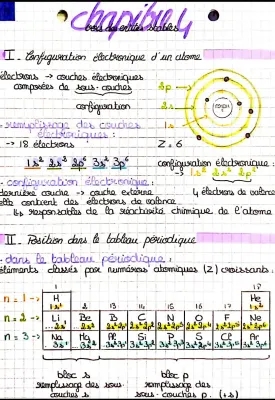 chapitre 4
vers des entités stables
I - Configuration électronique d'un atome
électrons → couches électroniques
composées de sous-couches
configuration
2p
2s
1s
noyau
- remplissage des couches
électroniques :
→ 18 électrons
Z = 6
1s² 2s² 2p⁶ 3s² 3p⁶
configuration électronique :
1s² 2s² 2p²
- configuration électronique :
dernière couche → couche externe
4 électrons de valence
elle contient des électrons de valence
responsables de la réactivité chimique de l'atome
II - Position dans le tableau périodique
- dans le tableau périodique :
éléments classés par numéros atomiques (Z) croissants
1 18
n = 1 → H He
1s¹ 1s²
2 13 14 15 16 17
n = 2 → Li Be B C N O F Ne
n = 3 → Na Mg Al Si P S Cl Ar
bloc s bloc p
remplissage des sous- remplissage des
couches s sous-couches p. (+s)